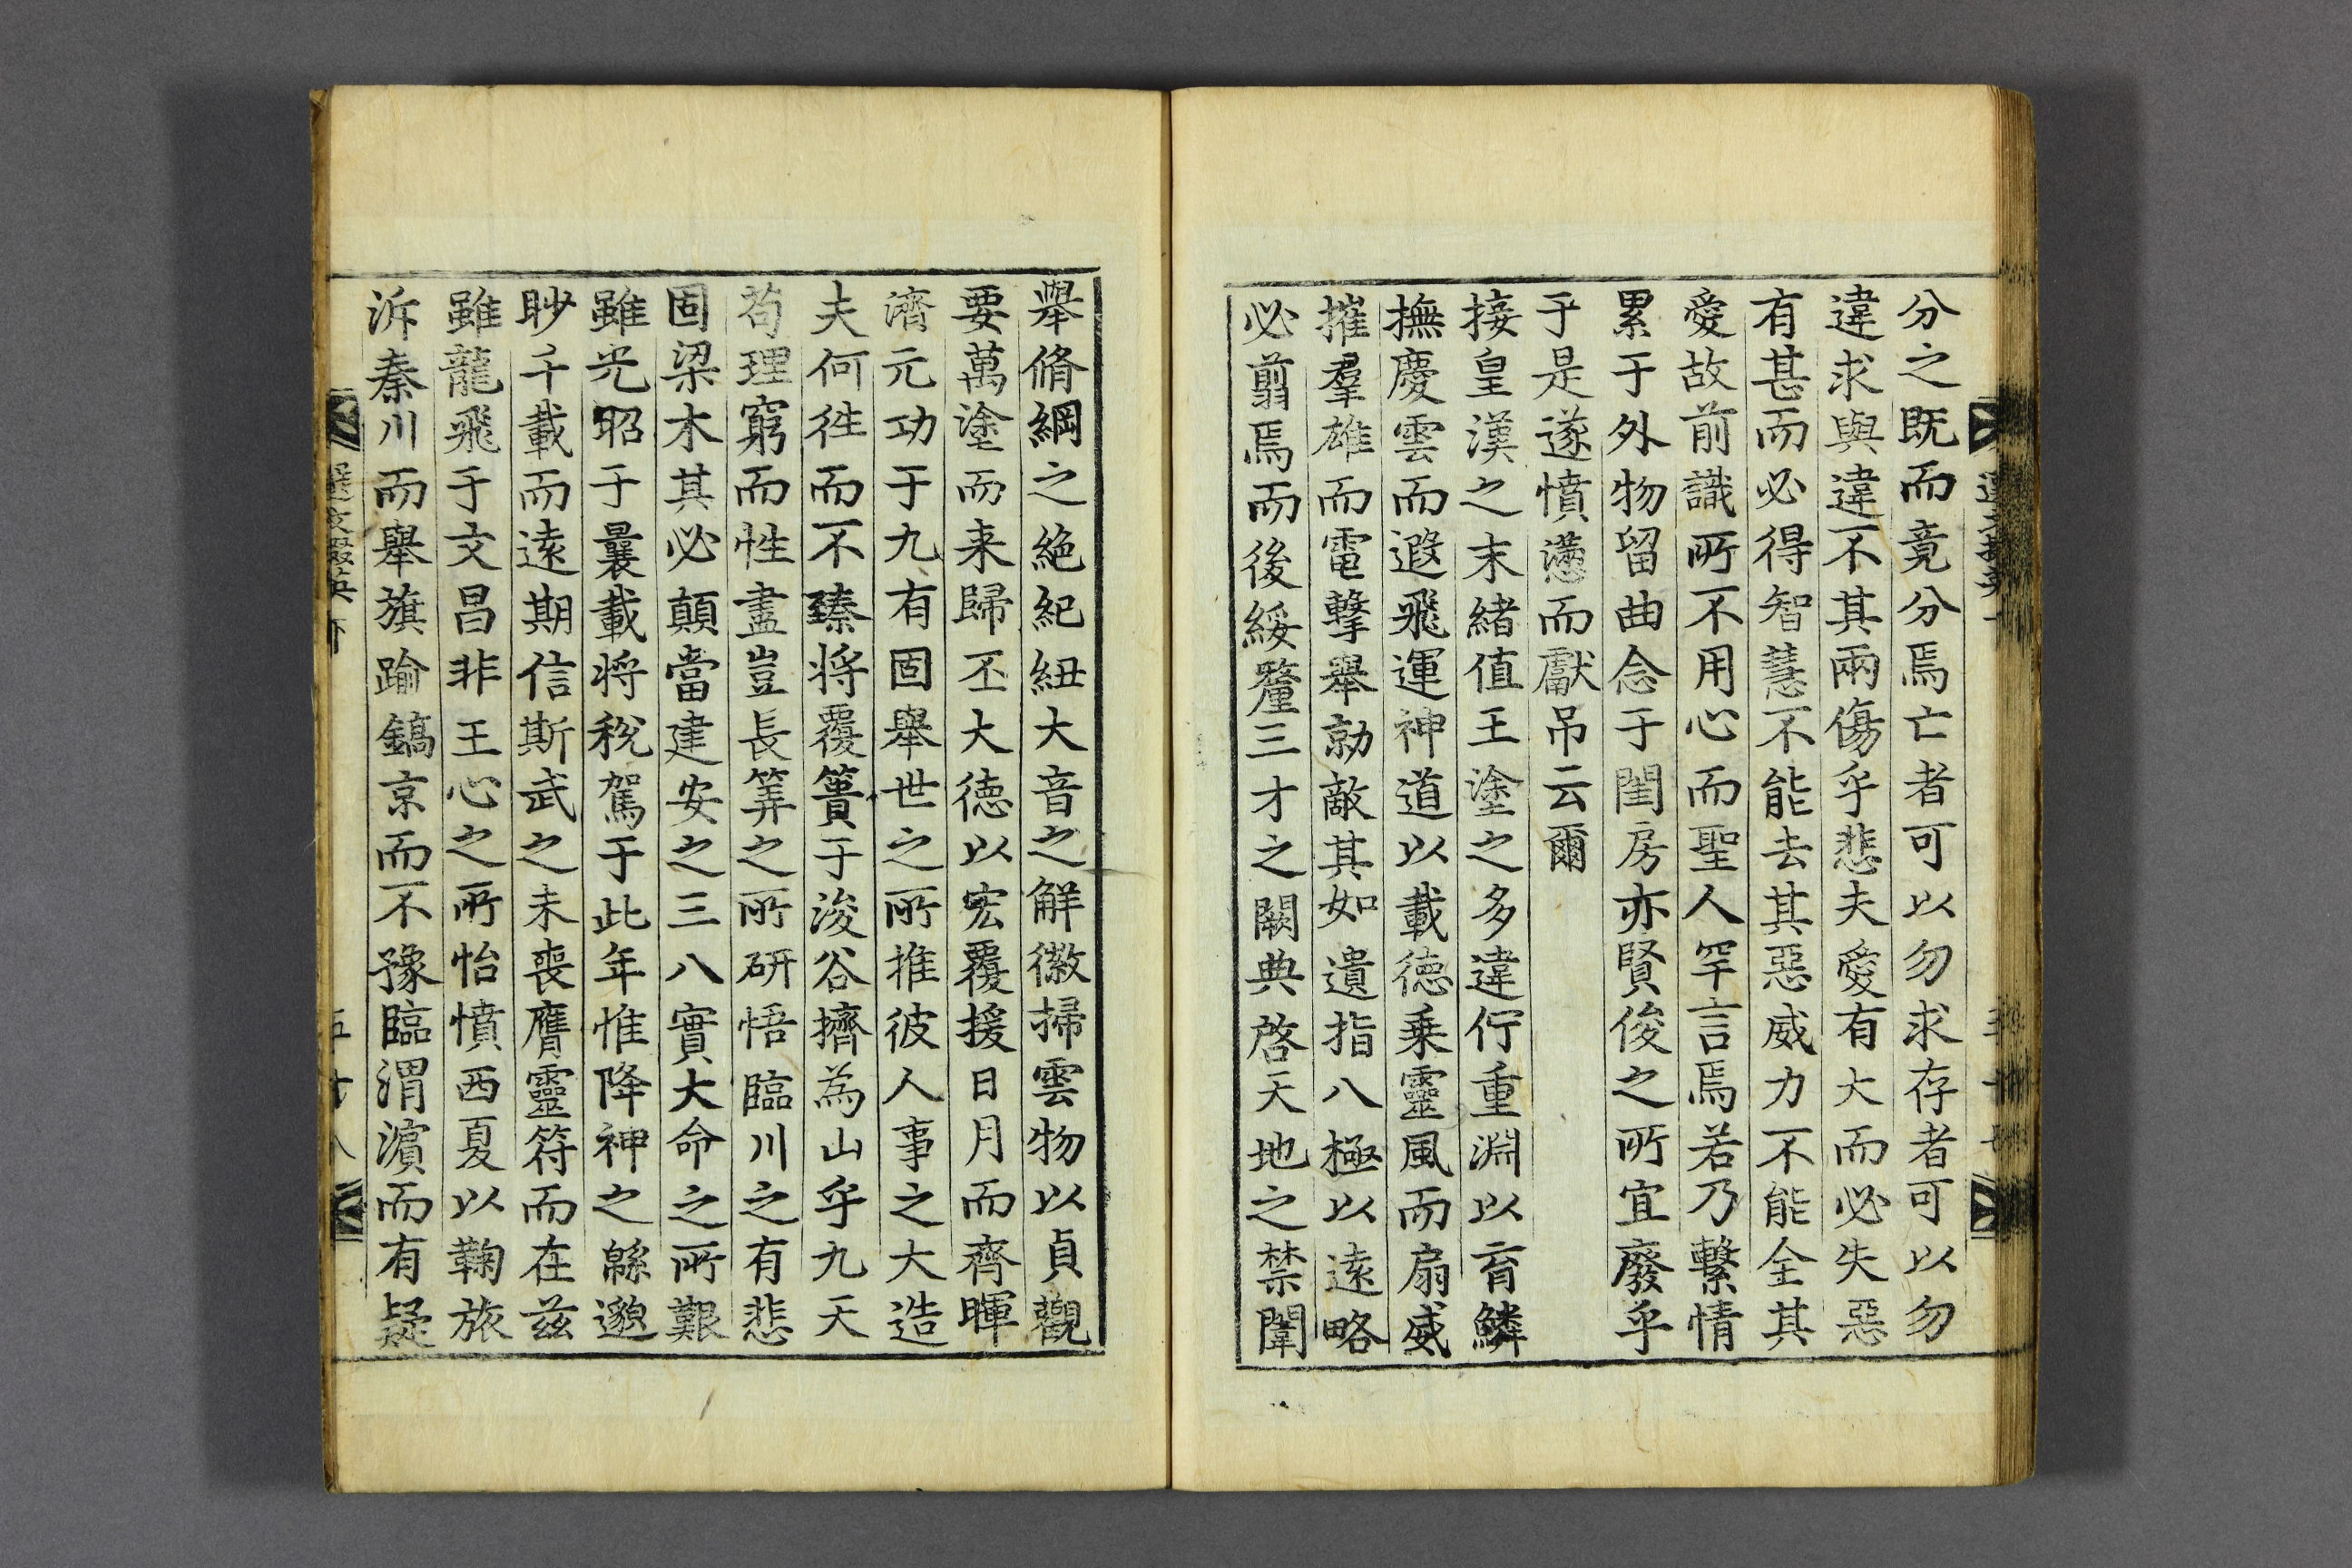 分之既而竟分焉亡者可以勿求存者可以勿
違求與違不其兩傷乎悲夫愛有大而必失惡
有甚而必得智慧不能去其惡威力不能全其
愛故前識所不用心而聖人罕言焉若乃繫情
累于外物留曲念于閨房亦賢俊之所宜廢乎
于是遂憤懣而獻吊云爾
接皇漢之末緒值王塗之多違佇重淵以育鱗
撫慶雲而遐飛運神道以載德乗靈風而扇威
摧羣雄而電擊舉勍敵其如遺指八極以遠略
必翦焉而後綏釐三才之闕典啓天地之禁闈
舉脩綱之絕紀紐大音之解徽掃雲物以貞觀
要萬塗而来歸丕大德以宏覆援日月而齊暉
濟元功于九有固舉世之所推彼人事之大造
夫何徃而不臻将覆簣于浚谷擠為山乎九天
苟理窮而性盡豈長筭之所研悟臨川之有悲
固梁木其必顛當建安之三八實大命之所艱
雖光昭于曩載将稅駕于此年惟降神之緜邈
眇千載而遠期信斯武之未喪膺靈符而在茲
雖龍飛于文昌非王心之所怡憤西夏以鞠旅
泝秦川而舉旗踰鎬京而不豫臨渭濵而有疑
選文掇英下
五十八